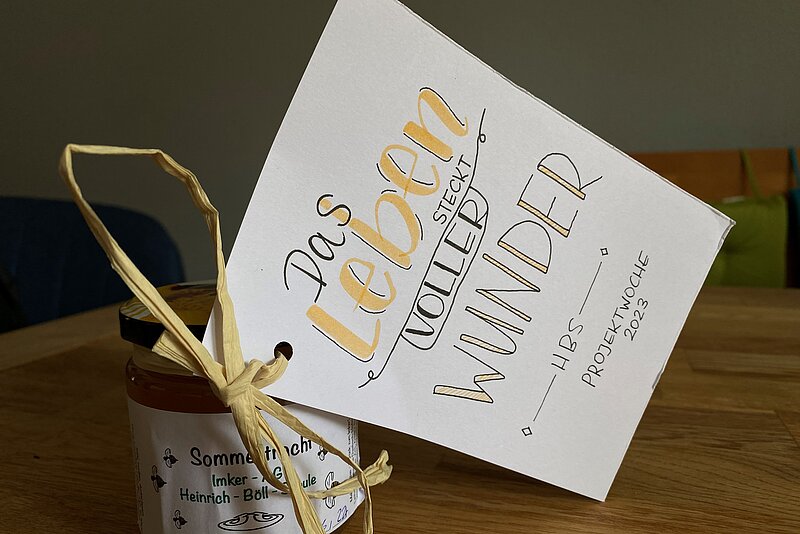 Das
Leben
STECKT
VOLLER
WUNDER
HBS
PROJEKTWOCHE
2023
Sommertracht
Imker - AG
Heinrich - Böll - Schule